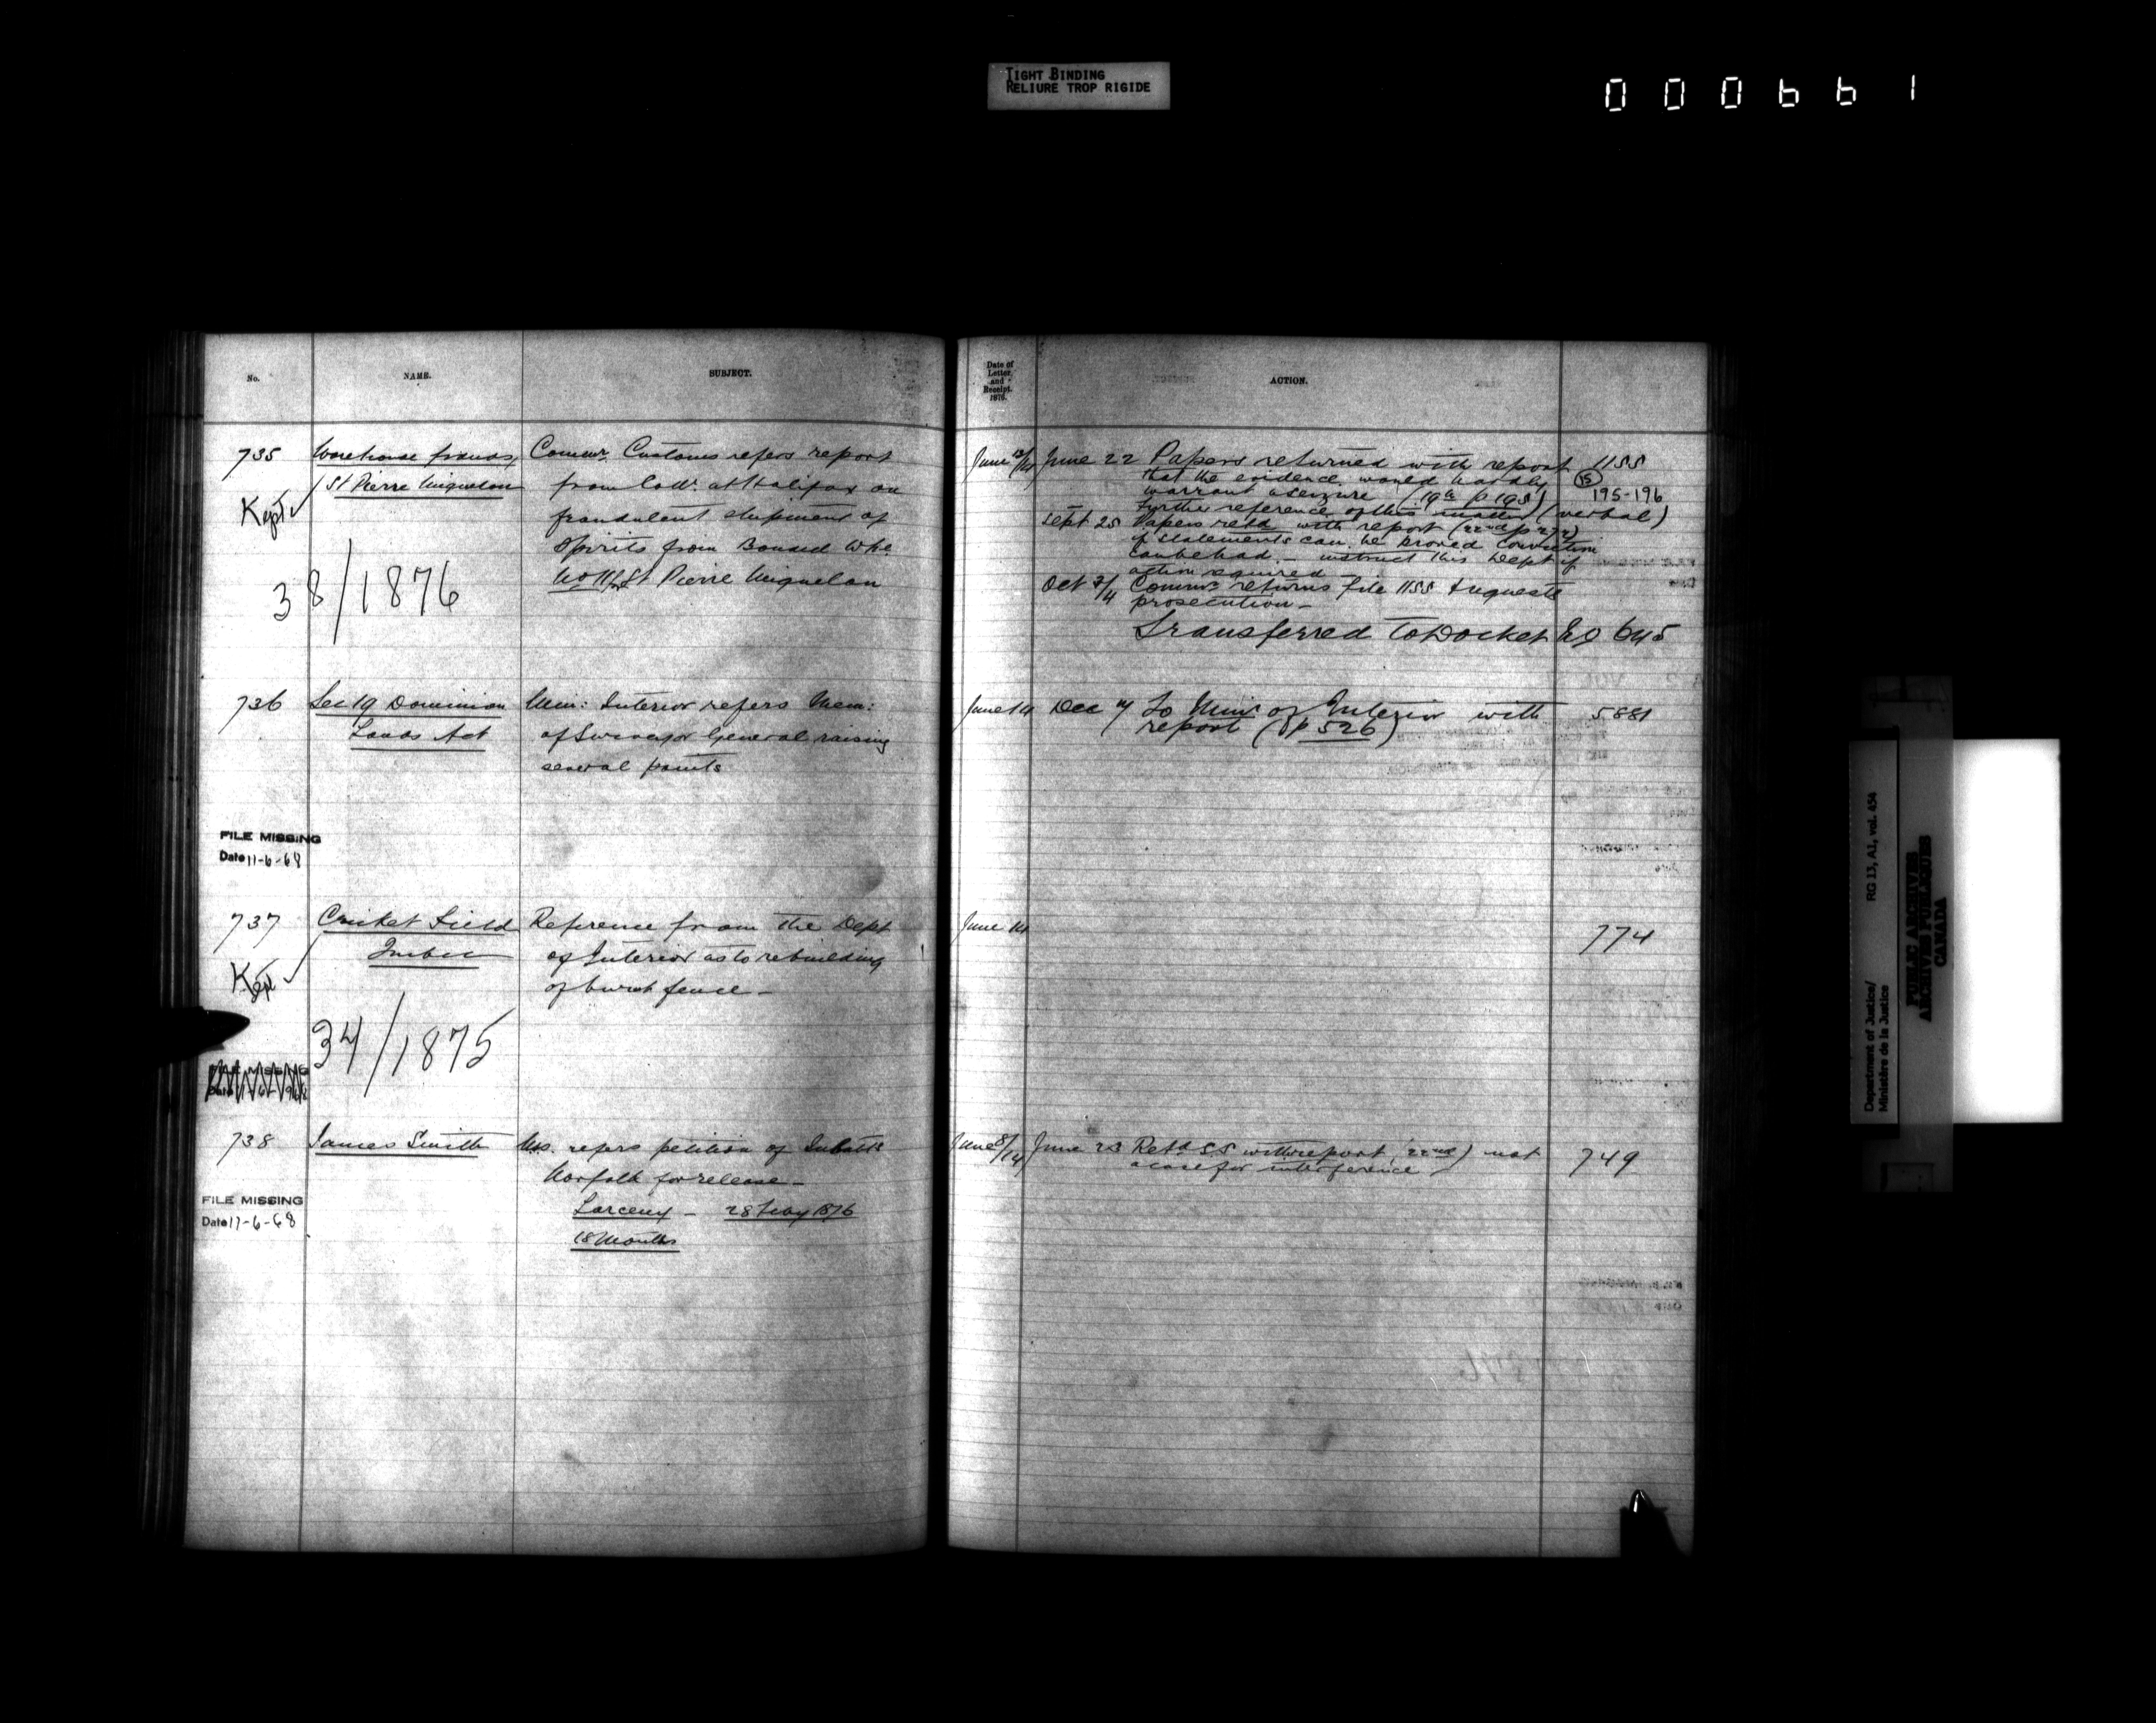 TIGHT BINDING
RELIURE TROP RIGIDE
000661
No.
NAME.
SUBJECT.
735
Warehouse frauds,
St Pierre Miquelon
Kept
38/1876
Commr. Customs refers report
from Collr. at Halifax on
fraudulent shipment of
Spirits from Bonded Whe
St Pierre Miquelon
736
Sec 19 Dominion
Lands Act
Min: Interior refers Mem:
of Surveyor General raising
several points
FILE MISSING
Date 11-6-68
737
Cricket Field
Quebec
Kept
34/1875
Reference from the Dept
of Interior as to rebuilding
of burnt fence —
FILE MISSING
738
James Smith
refers petition of
Norfolk for release —
Larceny — 28 Feby 1876
18 Months
FILE MISSING
Date 11-6-68
Date of
Letter,
and
Receipt.
1876.
ACTION.
June 13/14
June 22 Papers returned with report
that the evidence would hardly
warrant a seizure (19th p 195)
further reference of this matter (verbal)
Sept 25 Papers retd with report (22nd p 272)
if statements can be proved conviction
can be had — instruct this Dept if
action required —
Oct 3/4 Commr returns file 1155 & requests
prosecution —
Transferred to Docket No 645
1155
15
195-196
June 14
Dec 4 To Minr of Interior with
report (p 526)
5881
June 14
774
June 8/14
June 23 Retd SS with report (22nd) not
a case for interference
749
Department of Justice/
Ministère de la Justice
RG 13, A1, vol. 454
PUBLIC ARCHIVES
ARCHIVES PUBLIQUES
CANADA